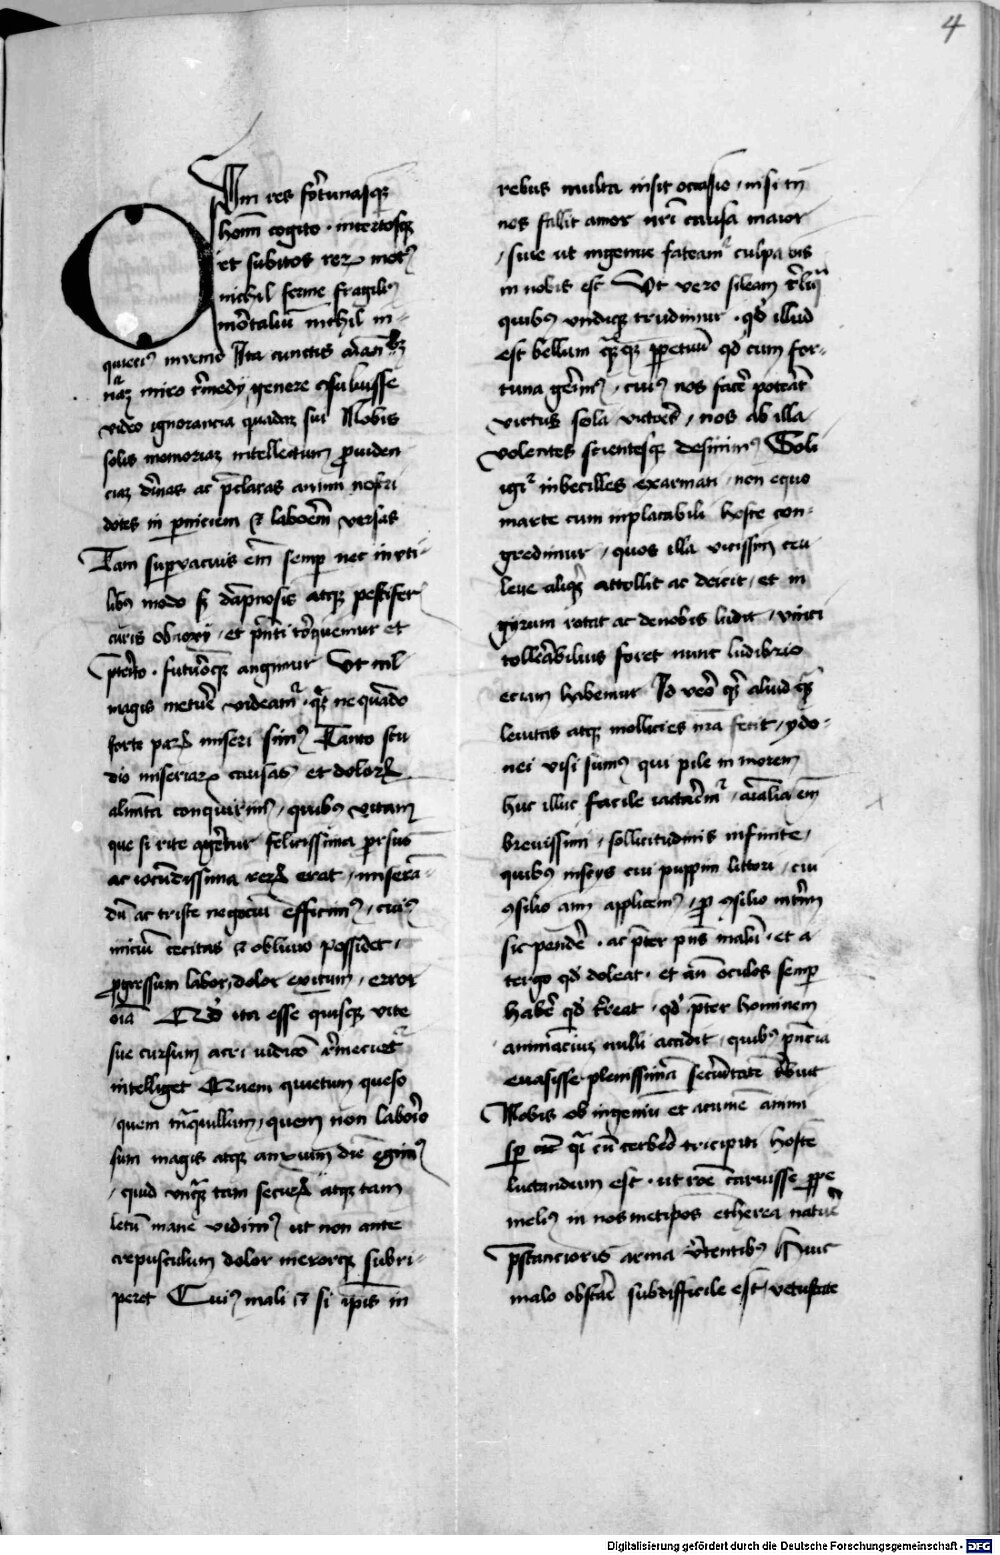 4
OUm res fortunasque
homĩ cogito · incertosque
et subitos rerum mot9
nichil ferme fragili9
mortaliũ nichil in-
quieci9 invenio Ita cunctis animantibus
naturam miro remedij genere consuluisse
video ignorancia quadam sui Nobis
solis memoriam intellectum providen
ciam divinas ac preclaras animi nostri
dotes in perniciem et laborem versas
Tam supervacuis enim semper nec inuti-
libus modo sed dampnosis atque pestiferis
curis obnoxij / et presenti torquemur et
preterito · futuroque angimur Ut nil
magis metuere videamur · quam ne quando
forte parum miseri simus Tanto stu
dio miseriarum causas et dolorum
alimenta conquirimus / quibus vitam
que si rite ageretur felicissima prorsus
ac iocundissima rerum erat / miseran-
dum ac triste negocium efficimus / cuius
inicium cecitas et oblivio possidet /
progressum labor / dolor exitum / error
omnia Quod ita esse quisque vite
sue cursum acri iudicio remecietur
intelliget Quem quietum queso
/ quem tranquillum / quem non laborio
sum magis atque anxium diem egimus
/ quid unquam tam securum atque tam
letum mane vidimus ut non ante
crepusculum dolor merorque subri-
peret Cuius mali et si ipsis in
rebus multa insit occasio / nisi tamen
nos fallit amor nostri causa maior
/ sive ut ingenue fateamur culpa omnis
in nobis est Ut vero sileam reliqua
quibus undique trudimur · quod illud
est bellum quamque perpetuum quod cum for-
tuna gerimus / cuius nos facere poterat
virtus sola victores / nos ab illa
volentes scientesque desimus Soli
igitur inbecilles exarmati / non equo
marte cum inplacabili hoste con-
gredimur / quos illa vicissim ceu
leve aliquid attollit ac deicit / et in
gyrum rotat ac denobis ludit / vinci
tollerabilius foret nunc ludibrio
eciam habemur Id vero quid aliud quam
levitas atque mollicies nostra fecit / ydo-
nei visi sumus qui pile in morem
huc illuc facile iactaremur / animalia enim
brevissimi / sollicitudinis infinite /
quibus insciis cui puppim littori / cui
consilio animum applicemus / pro consilio interim
sic pendere · ac preter presens malum · et a
tergo quod doleat · et ante oculos semper
habere quod terreat · quod preter hominem
animancium nulli accidit / quibus presencia
evasisse plenissima securitatem tribuit
Nobis ob ingenium et acumen animi
semper cum quasi cum cerbero tricipiti hoste
luctandum est · ut racione caruisse prope
melius in nosmetipsos etherea nature
prestancioris arma vertentibus Huic
malo obstare subdifficile est / vetustate
Digitalisierung gefördert durch die Deutsche Forschungsgemeinschaft - DFG